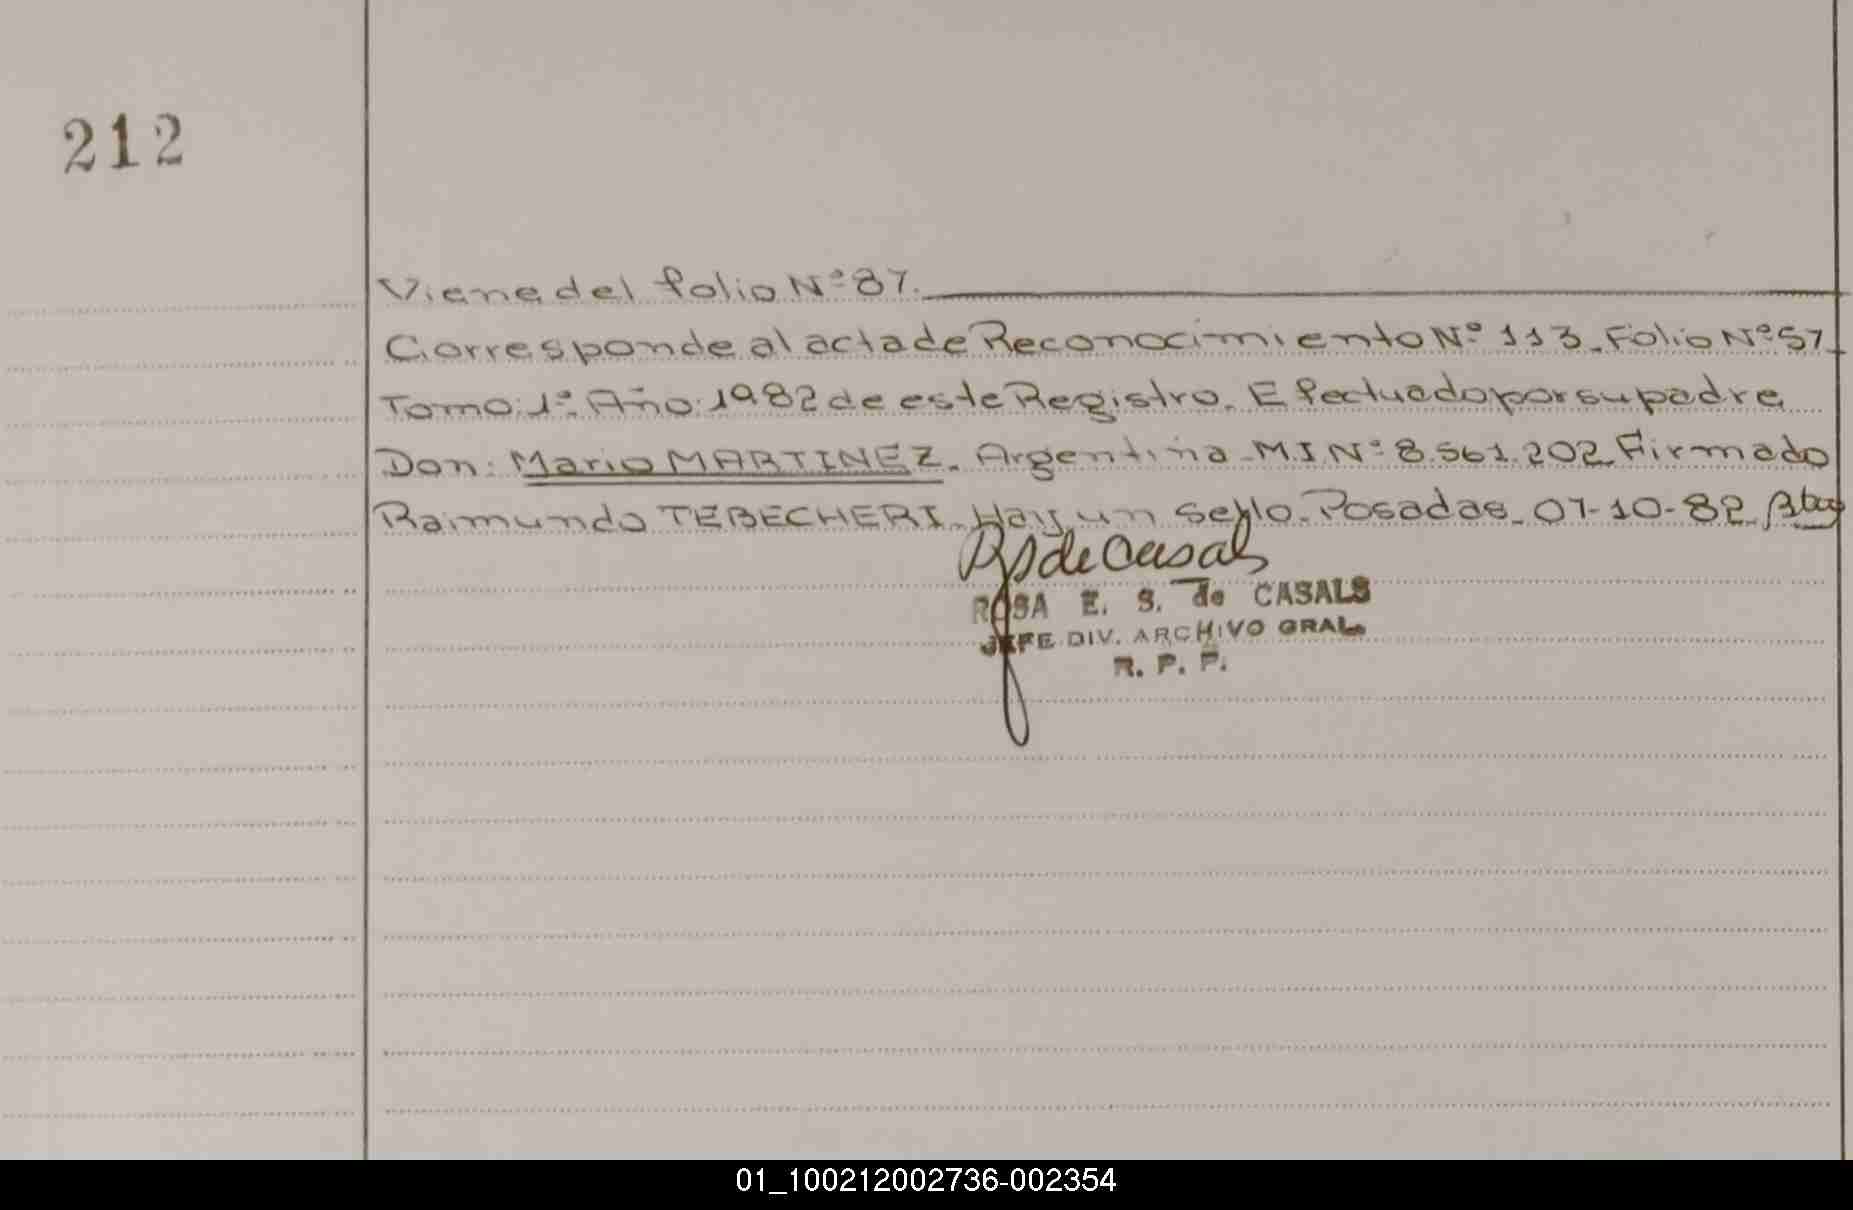 212
Viene del folio Nº 87.
Corresponde al acta de Reconocimiento Nº 113. Folio Nº 57
Tomo: 1º. Año: 1982 de este Registro. Efectuado por su padre
Don: Mario MARTINEZ. Argentina. M.I. Nº 8.561.202 Firmado
Raimundo TEBECHERI. Hay un sello. Posadas. 07-10-82
RSdeCasals
ROSA E. S. de CASALS
JEFE DIV. ARCHIVO GRAL.
R. P. P.
01_100212002736-002354